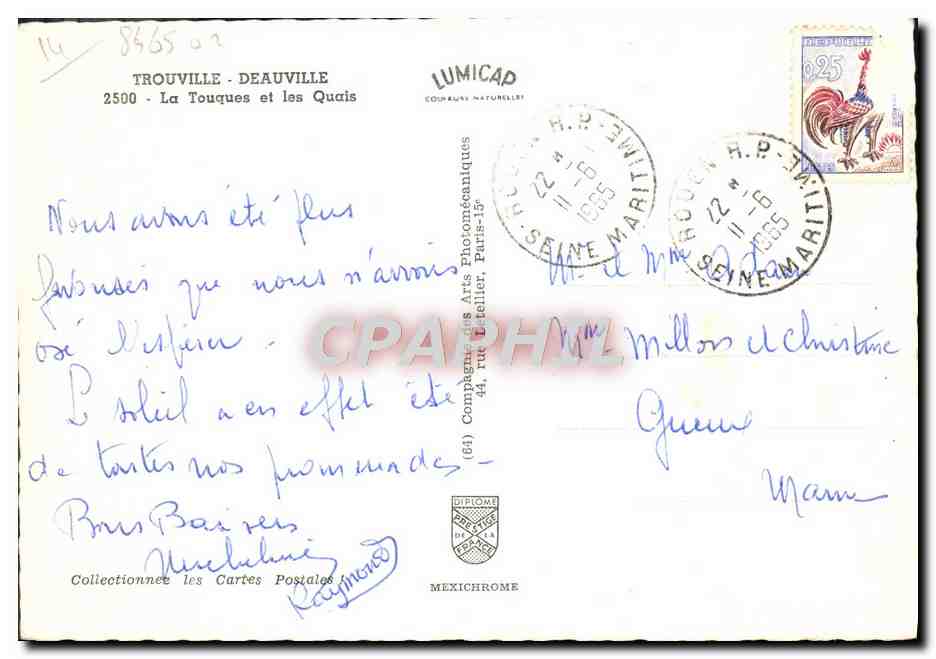 14 8465 02
TROUVILLE - DEAUVILLE
2500 - La Touques et les Quais
LUMICAP
COULEURS NATURELLES
0,25
ROUEN R.P. - SEINE MARITIME
22 H
11 - 6
1965
ROUEN R.P. - SEINE MARITIME
22 H
11 - 6
1965
Nous avons été plus
que nous n'avions
osé l'espérer -
Le soleil a en effet été
de toutes nos promenades -
Bons Baisers
Raymond
(64) Compagnie des Arts Photomécaniques
44, rue Letellier, Paris-15e
M. et Mme
Mme Millois et Christine
Gueux
Marne
CPAPHIL
DIPLOME
PRESTIGE
DE LA
FRANCE
MEXICHROME
Collectionnez les Cartes Postales !